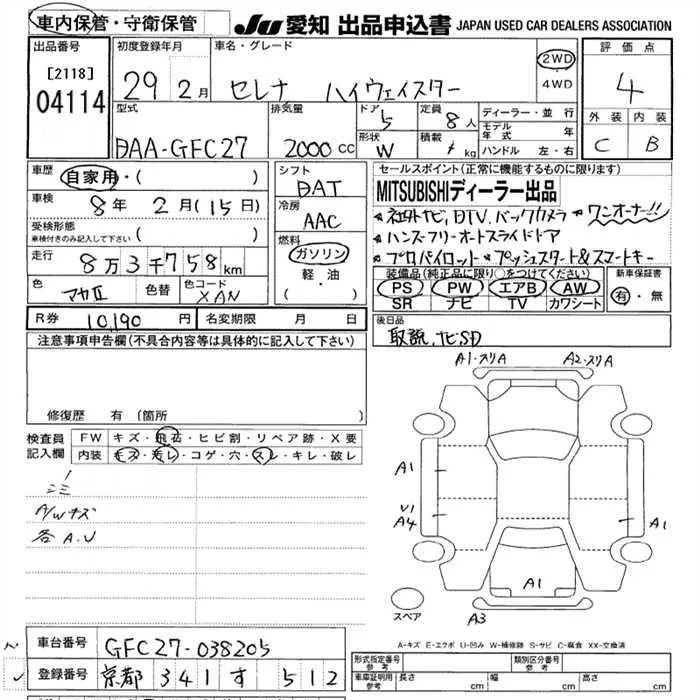 車内保管・守衛保管
JU 愛知 出品申込書 JAPAN USED CAR DEALERS ASSOCIATION
出品番号
[2118]
04114
初度登録年月
29年2月
車名・グレード
セレナ ハイウェイスター
2WD
・
4WD
評価点
4
外装 内装
C B
型式
DAA-GFC27
排気量
2000 CC
ドア
5
形状
W
定員
8人
積載
kg
ディーラー・並行
モデル年式 年
ハンドル 左・右
車歴
自家用・( )
車検
8年 2月(15日)
受検形態
車検付きのみ記入して下さい
( )
走行
8万3千758km
色
マルーン
色替
色コード
XAN
シフト
DAT
冷房
AAC
燃料
ガソリン
・
軽・油
( )
セールスポイント(正常に機能するものに限ります)
MITSUBISHIディーラー出品
社外ナビ,DTV,バックカメラ ワンオーナー!!
ハンズフリーオートスライドドア
プロパイロット プッシュスタート&スマートキー
装備品(純正品に限り○をつけてください)
PS PW エアB AW
SR ナビ TV カワシート
新車保証書
有・無
R券 10,190 円 名変期限 月 日
後日品
取説,ナビSD
注意事項申告欄(不具合内容等は具体的に記入して下さい)
修復歴 有 〔箇所 〕
検査員
記入欄
FW キズ・飛石・ヒビ割・リペア跡・X要
内装 キズ・汚レ・コゲ・穴・スレ・キレ・破レ
A/Wキズ
各A.U
A1・スリA A2・スリA
A1
U1
A4
A1
A1
A3
スペア
A-キズ E-エクボ U-凹み W-補修跡 S-サビ C-腐食 XX-交換済
車台番号 GFC27-038205
登録番号 京都 341 す 512
形式指定番号
参考
類別区分番号
参考
車庫証明用
参考
長さ cm 幅 cm 高さ cm